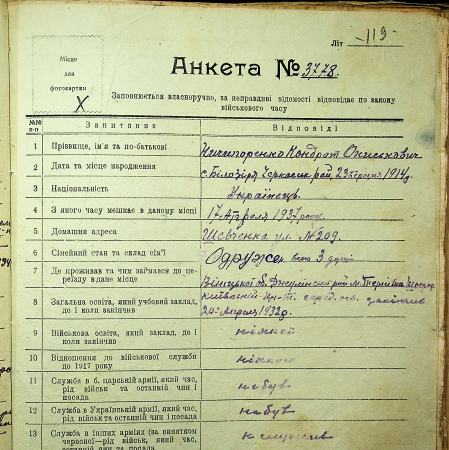 Літ -119-
Місце
для
фотокартки
X
Анкета № 3778.
Заповнюється власноручно, за неправдиві відомості відповідає по закону
військового часу
№№
п-п
Запитання
Відповіді
1 Прізвище, ім'я та по-батькові
Ничипоренко Кондрат
2 Дата та місце народження
с. Білозіря Черкаськ. рай, 23 березня 1914 р.
3 Національність
Українець
4 З якого часу мешкає в даному місці
17 Апреля 1937 року.
5 Домашня адреса
Шевченка ул № 209.
6 Сімейний стан та склад сім'ї
Одруже 3 душі
7 Де проживав та чим займався до пе-
реїзду в дане місце
Вінницької об.
8 Загальна освіта, який учбовий заклад,
де і коли закінчив
закінчив
20 Апреля 1932 р.
9 Військова освіта, який заклад, де
і коли закінчив
ніякой
10 Відношення до військової служби
до 1917 року
ніякого
11 Служба в б. царській армії, який час,
рід військ та останній чин і
посада
не був
12 Служба в Українській армії, який час,
рід військ та останній чин і посада
не був
13 Служба в інших арміях (за винятком
червоної—рід військ, який час,
останній чин та посада